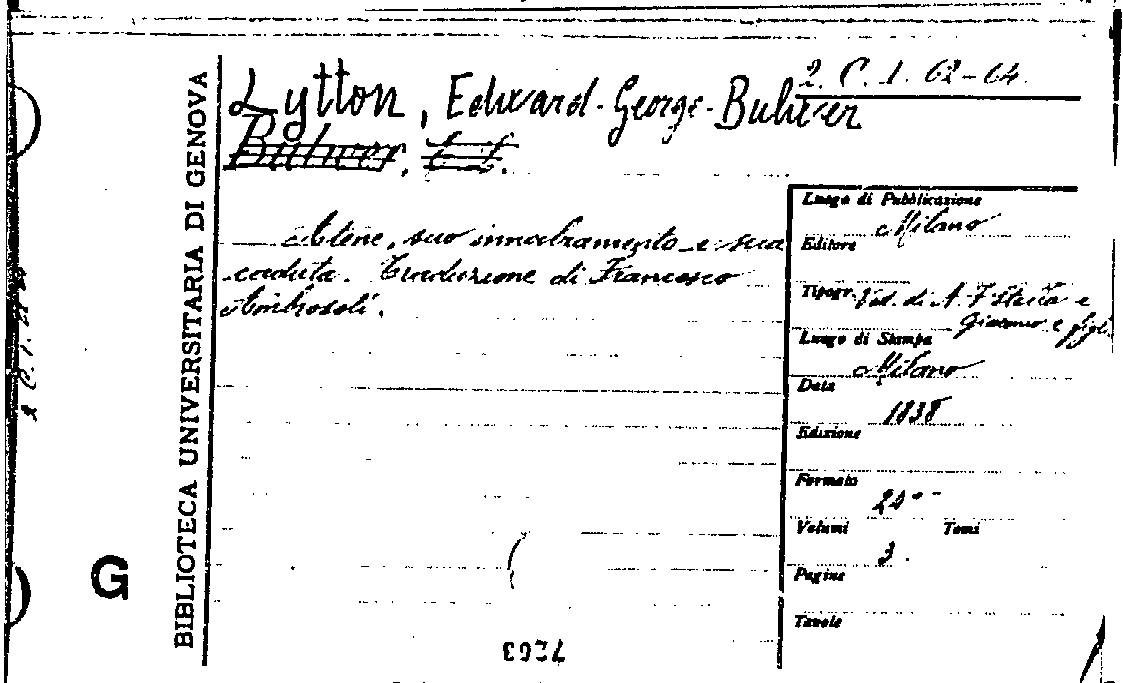 2. C. 1. 62-64.
Lytton, Edward-George-Bulwer
Bulwer, E. L.
Atene, suo innalzamento e sua
caduta. Traduzione di Francesco
Ambrosoli.
BIBLIOTECA UNIVERSITARIA DI GENOVA
G
Luogo di Pubblicazione
Milano
Editore
Tipogr. Ved. di A. F. Stella e
Giacomo e figli
Luogo di Stampa
Milano
Data
1838
Edizione
Formato
Volumi Tomi
3.
Pagine
Tavole
7203